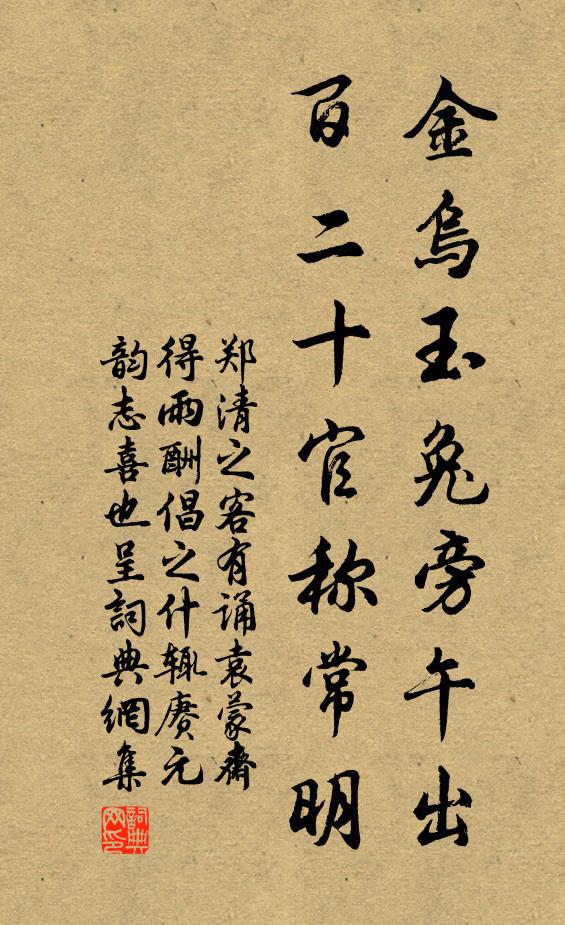 金乌玉兔旁午出
百二十官称常明
郑清之客有诵袁蒙斋
得雨酬倡之什辄赓元
韵志喜也呈詞典網集
詞典
网印